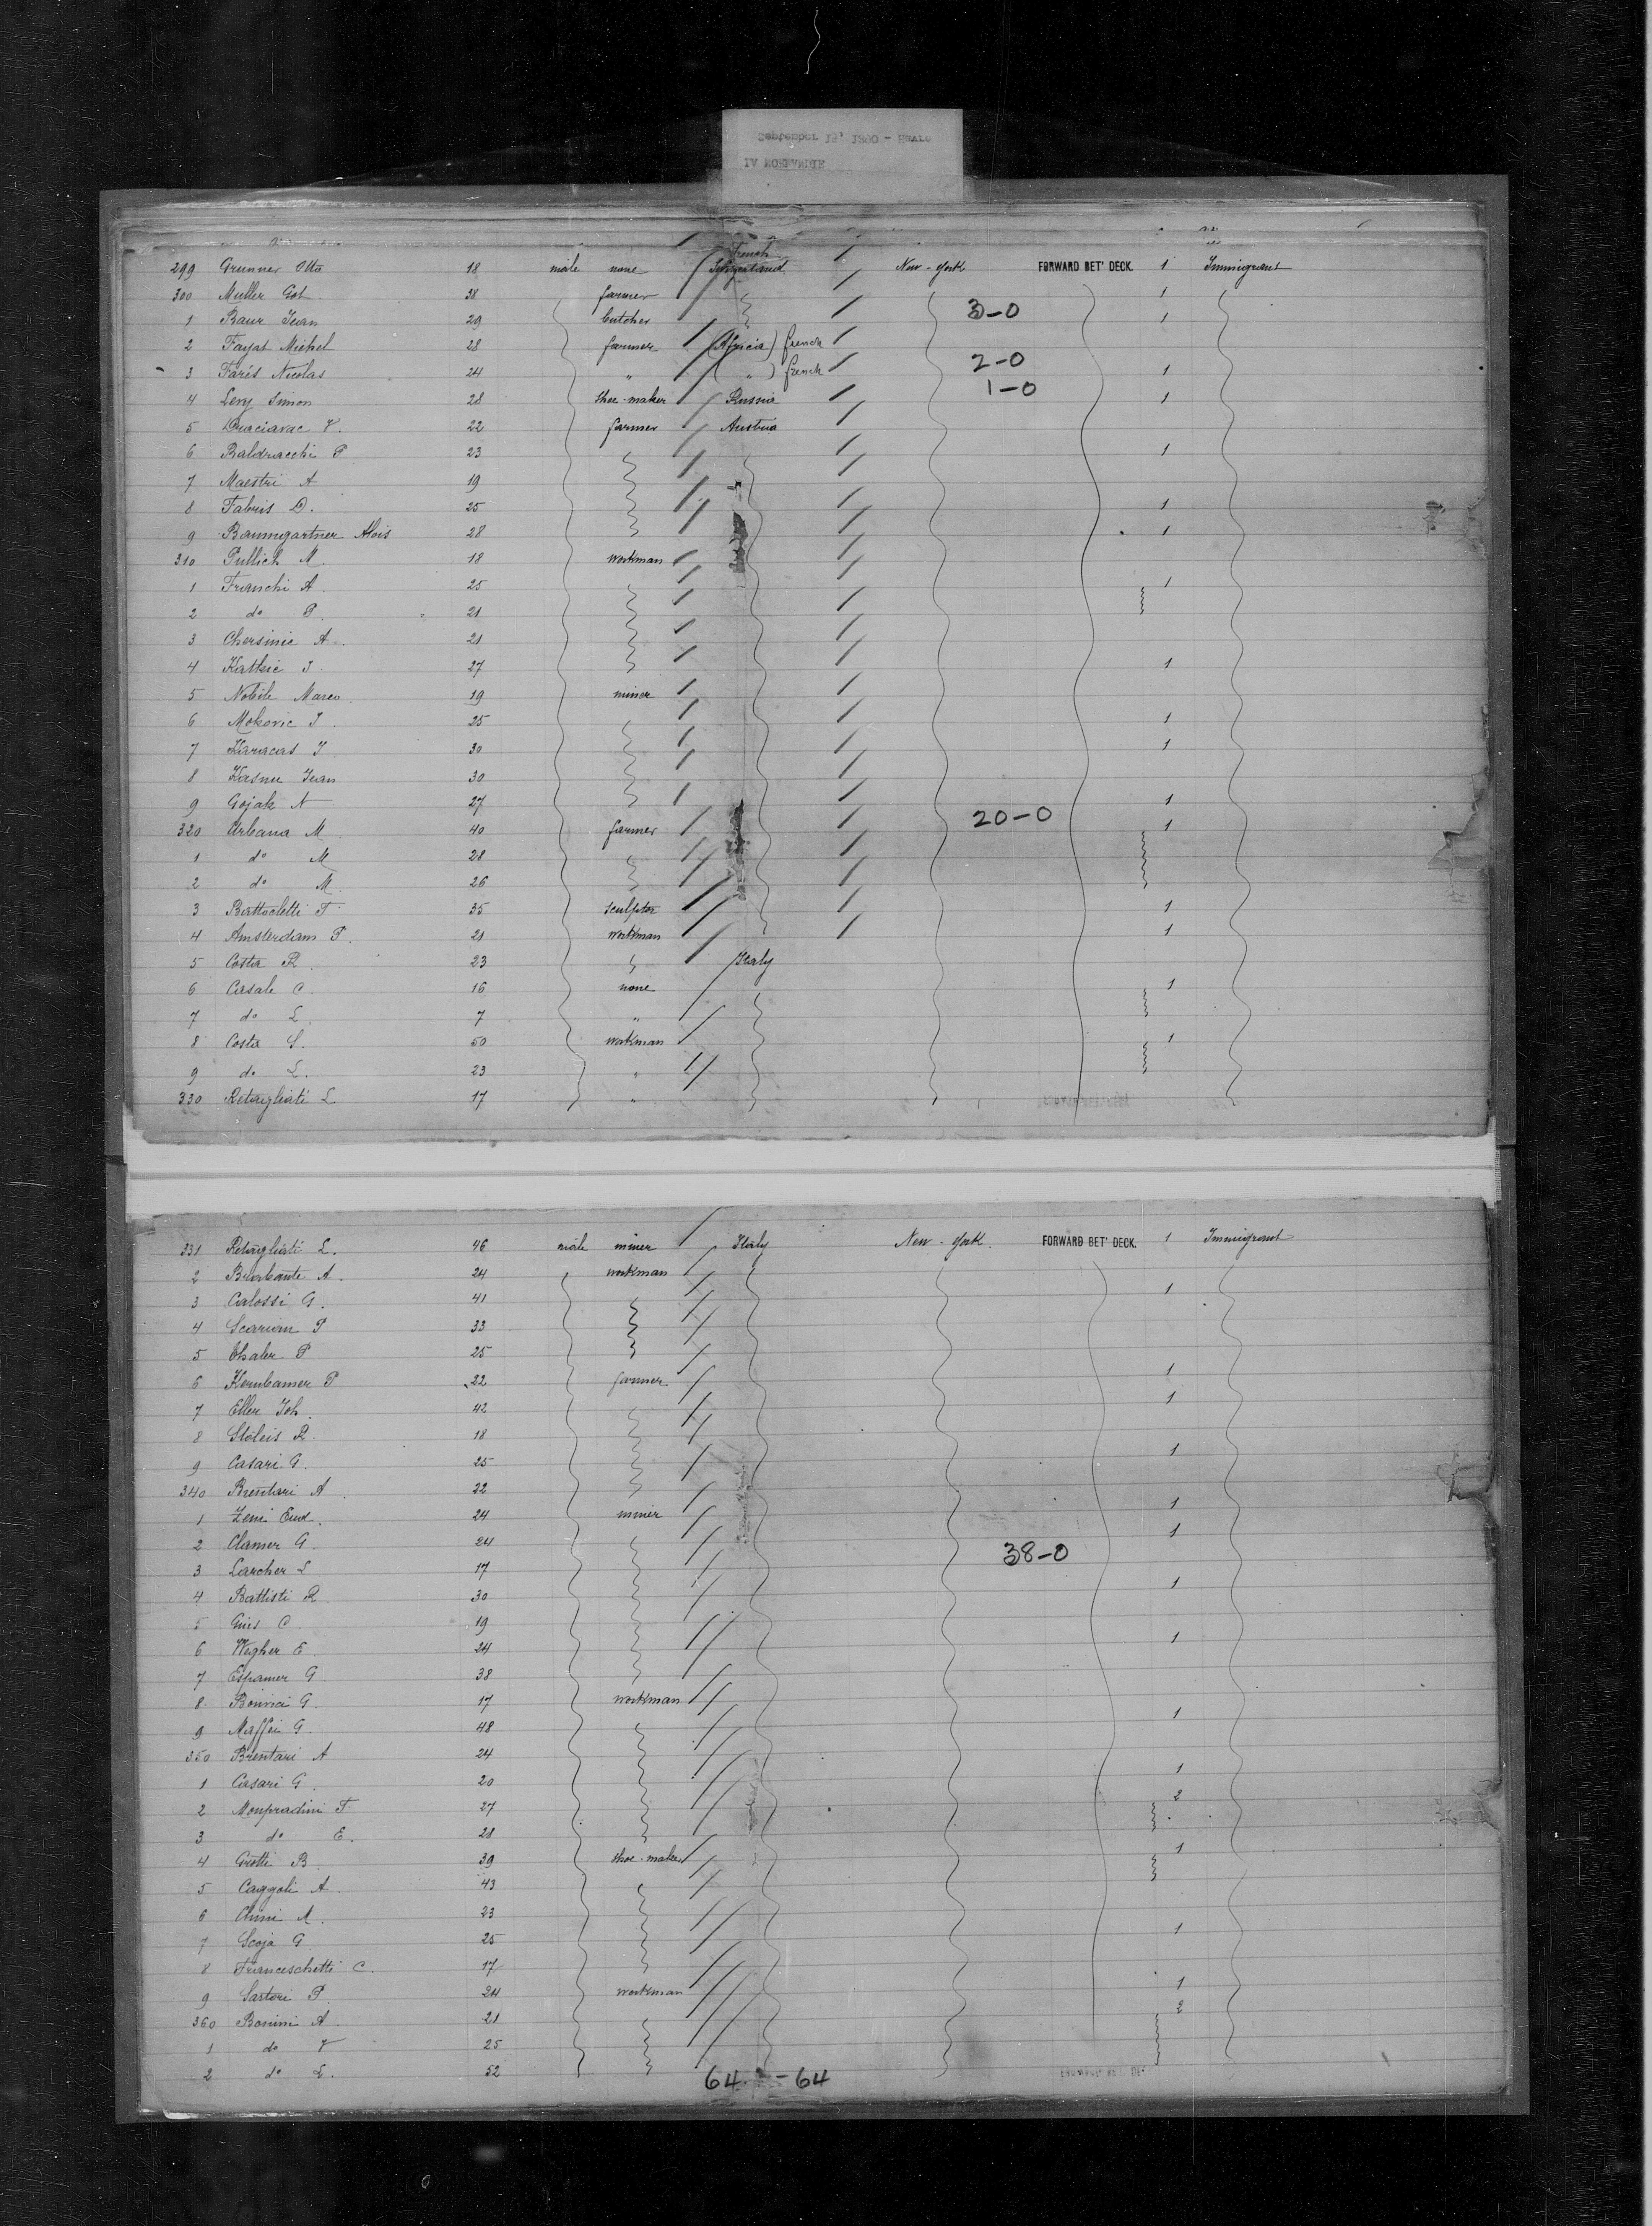 299 Grunner Otto 18 male none New-York FORWARD BET' DECK. 1 Immigrant
300 Muller Got. 38 farmer 1
1 Baur Jean 29 butcher 3-0 1
2 Fayat Michel 28 farmer (Africa) french
3 Faris Nicolas 24 " ( " ) french 2-0 1
4 Levy Simon 28 shoe-maker Russia 1-0 1
5 22 farmer Austria
6 Baldracchi P 23 1
7 Maestri A 19
8 Fabris D. 25 1
9 Baumgartner Alois 28 1
310 Pullich M. 18 workman
1 Franchi A. 25 1
2 do P. 21
3 Chersinic A. 21
4 27 1
5 Nobile Marco 19 miner
6 Mokovic J. 25 1
7 30 1
8 Jean 30
9 Gojak N 27 1
320 Urbana M. 40 farmer 20-0 1
1 do M 28
2 do M. 26
3 Battocletti F. 35 sculptor 1
4 Amsterdam P. 21 workman 1
5 Costa R. 23 Italy
6 Casale C. 16 none 1
7 do L. 7 "
8 Costa S. 50 workman 1
9 do L. 23 "
330 Retagliati L 17 "
331 Retagliati L. 46 male miner Italy New-York. FORWARD BET' DECK. 1 Immigrant
2 A. 24 workman
3 Calossi G. 41 1
4 P 33
5 Thaler P 25
6 P 22 farmer 1
7 Eller Joh. 42 1
8 R. 18
9 Casari G. 25 1
340 Brentari A. 22
1 Zeni Eud. 24 miner 1
2 Clamer G. 24 1
38-0
3 Larcher L 17
4 Battisti R 30 1
5 C 19
6 Wegher E 24 1
7 G 38
8 G. 17 workman
9 Maffei G. 48 1
350 Brentari A 24
1 Casari G. 20 1
2 F. 27 2
3 do E. 21
4 Grotti B. 39 shoe-maker 1
5 A. 43
6 M. 23
7 Scoja G 25 1
8 Franceschetti C. 17
9 Sartori P. 24 workman 1
360 Bonini A. 21 2
1 do V 25
2 do L. 52
64 - 64